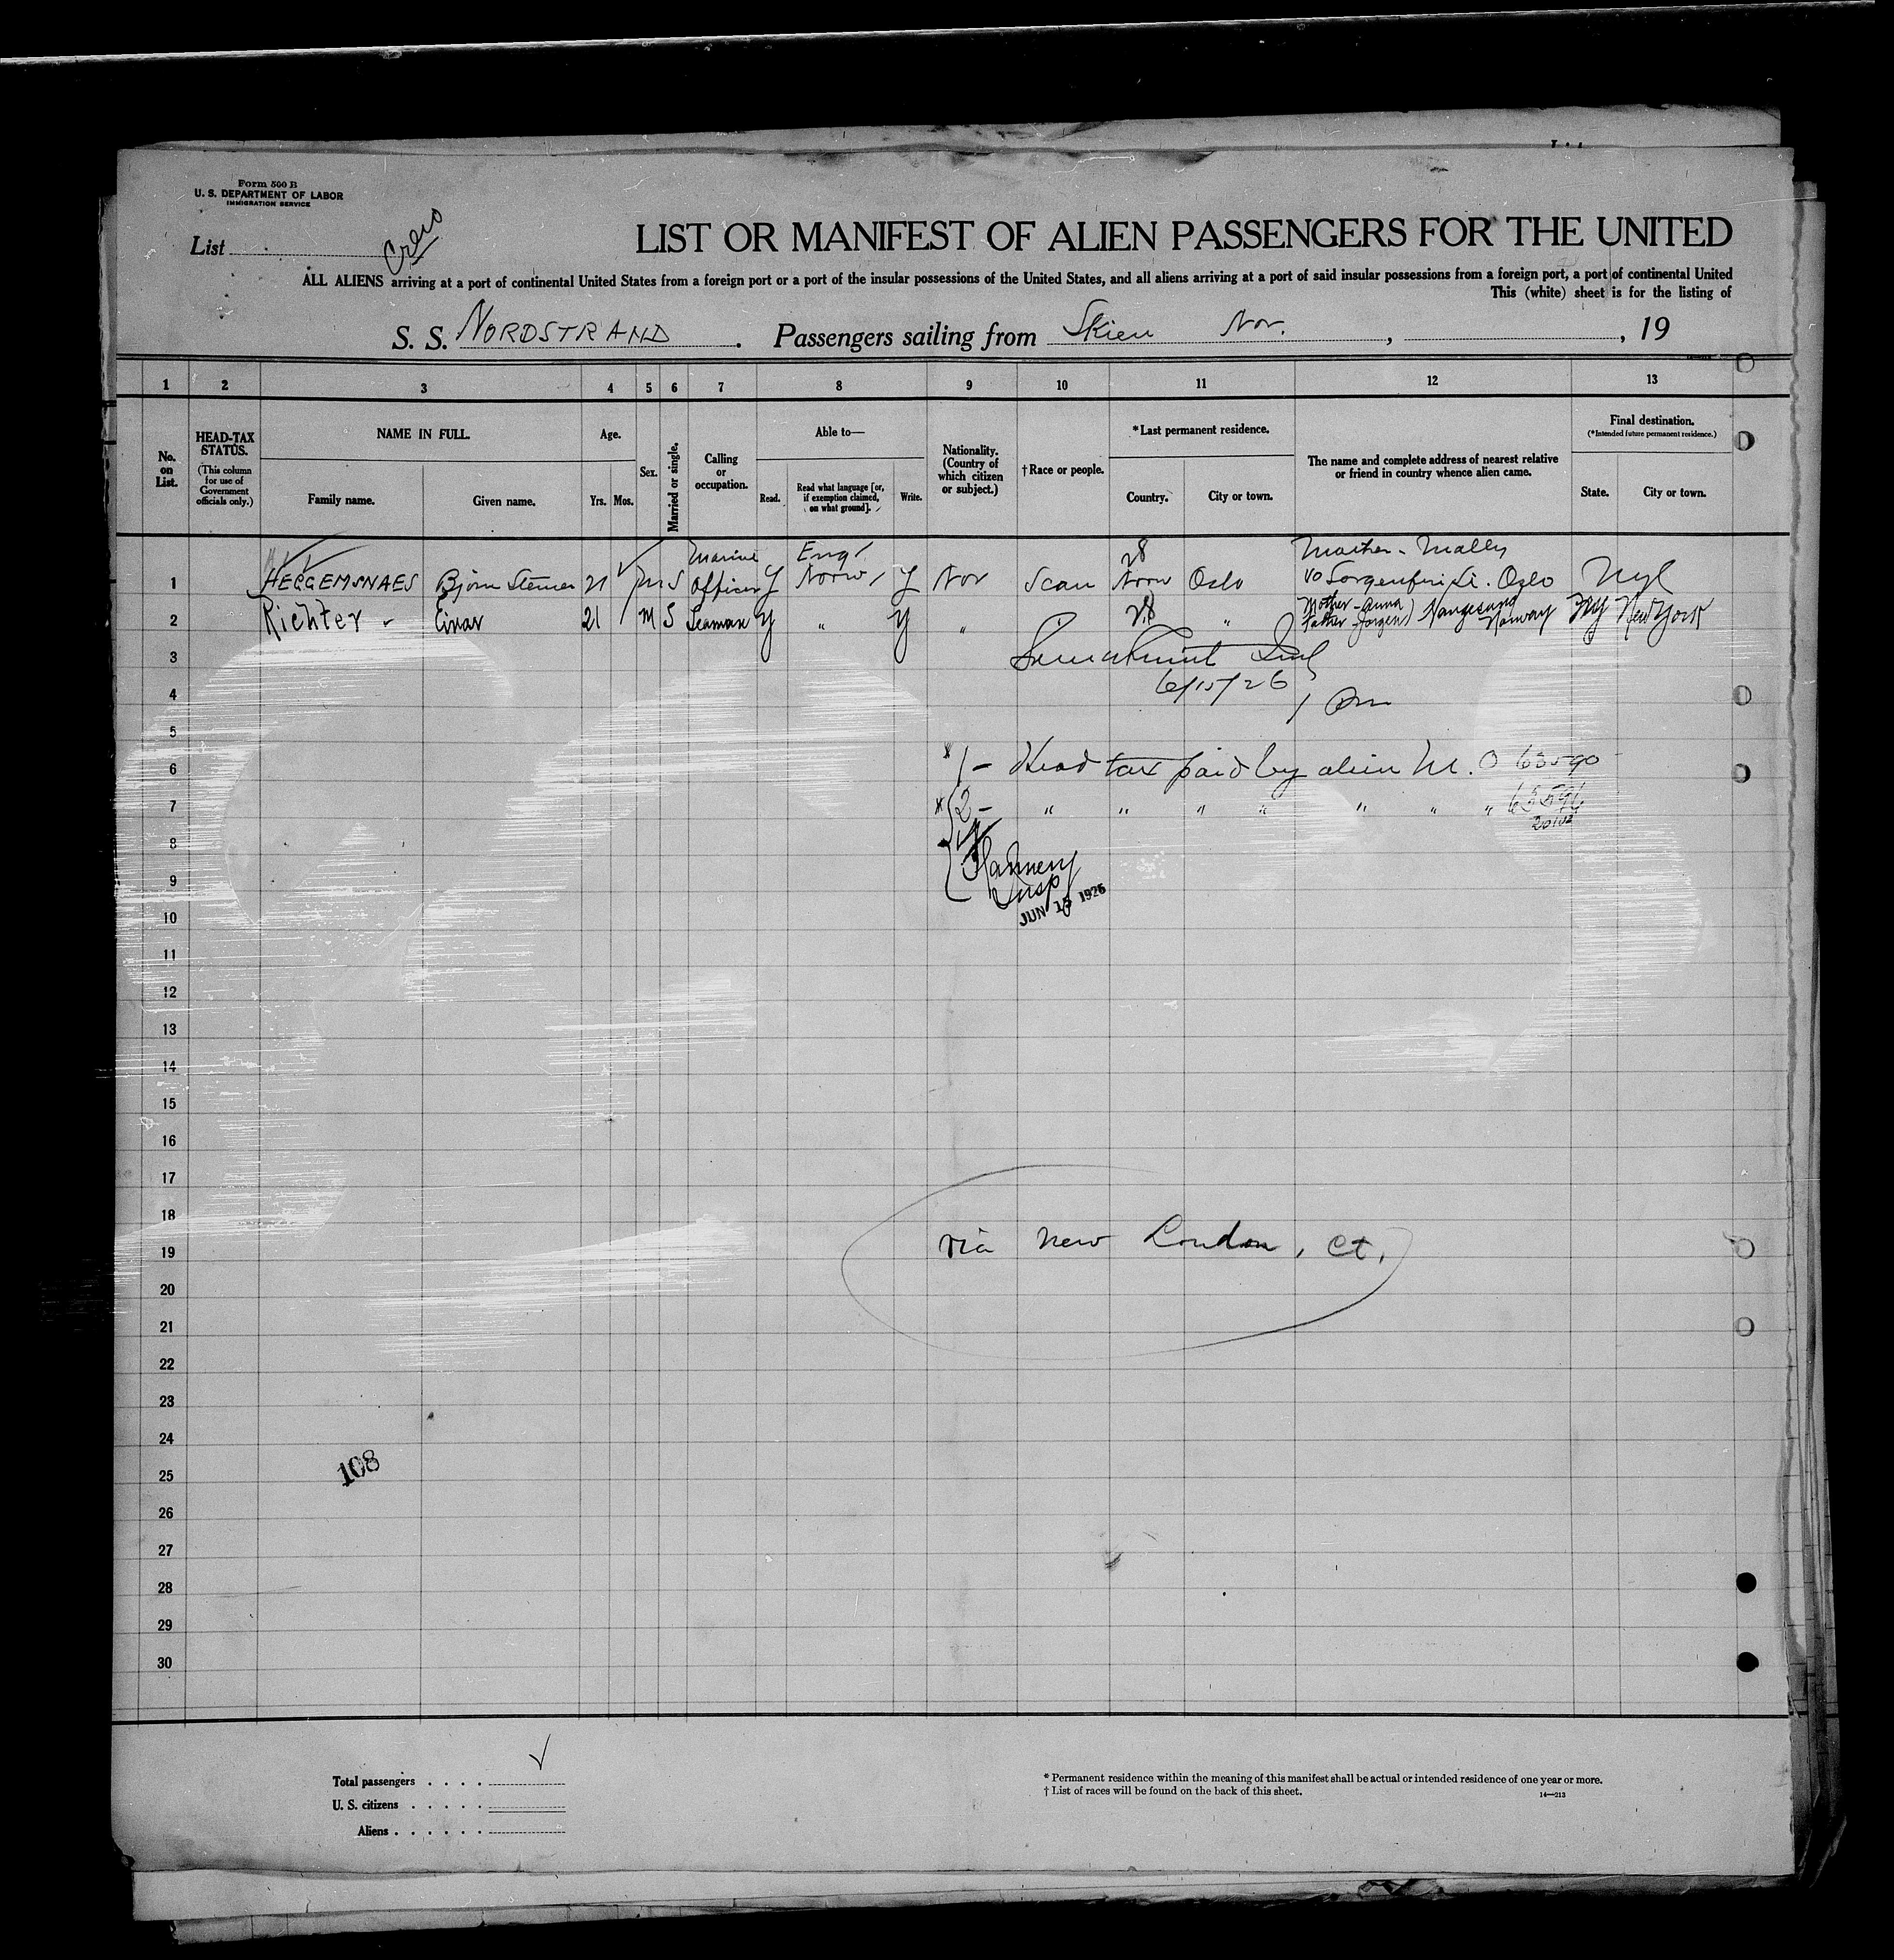 Form 500 B
U. S. DEPARTMENT OF LABOR
IMMIGRATION SERVICE
List
Crew
LIST OR MANIFEST OF ALIEN PASSENGERS FOR THE UNITED
ALL ALIENS arriving at a port of continental United States from a foreign port or a port of the insular possessions of the United States, and all aliens arriving at a port of said insular possessions from a foreign port, a port of continental United
This (white) sheet is for the listing of
S. S. NORDSTRAND. Passengers sailing from Skien Nor. , , 19
1 2 3 4 5 6 7 8 9 10 11 12 13
No. on List.
HEAD-TAX STATUS.
(This column for use of Government officials only.)
NAME IN FULL.
Family name.
Given name.
Age.
Yrs. Mos.
Sex.
Married or single.
Calling or occupation.
Able to—
Read.
Read what language [or, if exemption claimed, on what ground].
Write.
Nationality. (Country of which citizen or subject.)
†Race or people.
*Last permanent residence.
Country.
City or town.
The name and complete address of nearest relative or friend in country whence alien came.
Final destination.
(*Intended future permanent residence.)
State.
City or town.
1 HEGGEMSNAES Bjorn Steinar 21 M S Marine Officer Y Eng. Norw. Y Nor Scan Norw Oslo Mother - Mally Oslo
2 Richter Einar 21 M S Seaman Y " Y " " Mother - Anna Father - Jorgen Norway NY New York
3
6/15/26
4
1 Pm
5
6
*1 - Head tax paid by alien M. O 63590
7
*2 - " " " " " " "
8
Flannery
9
Insp
JUN 15 1926
10
11
12
13
14
15
16
17
18
19
via New London, Ct.
20
21
22
23
24
108
25
26
27
28
29
30
Total passengers
U. S. citizens
Aliens
* Permanent residence within the meaning of this manifest shall be actual or intended residence of one year or more.
† List of races will be found on the back of this sheet.
14—213